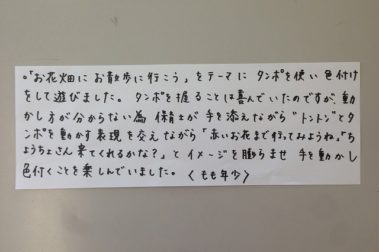 ◦「お花畑にお散歩に行こう」をテーマにタンポを使い色付け
をして遊びました。タンポを握ることは喜んでいたのですが、動
かし方が分からない為保育士が手を添えながら"トントン"とタ
ンポを動かす表現を交えながら「赤いお花まで行ってみようね」「ち
ょうちょさん来てくれるかな？」とイメージを膨らませ手を動かし
色付くことを楽しんでいました。〈もも年少〉